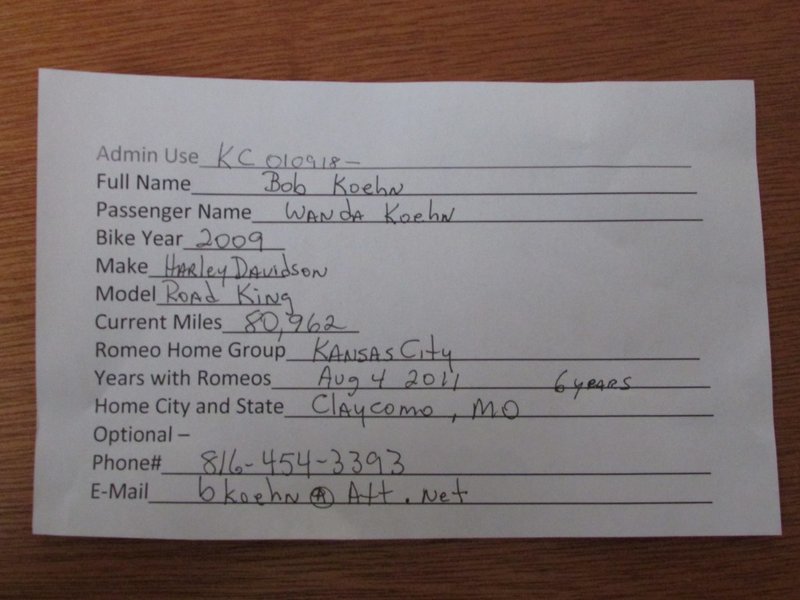 Admin Use KC 010918-
Full Name Bob Koehn
Passenger Name Wanda Koehn
Bike Year 2009
Make Harley Davidson
Model Road King
Current Miles 80,962
Romeo Home Group Kansas City
Years with Romeos Aug 4 2011 6 years
Home City and State Claycomo, MO
Optional –
Phone# 816-454-3393
E-Mail bkoehn@Att.net